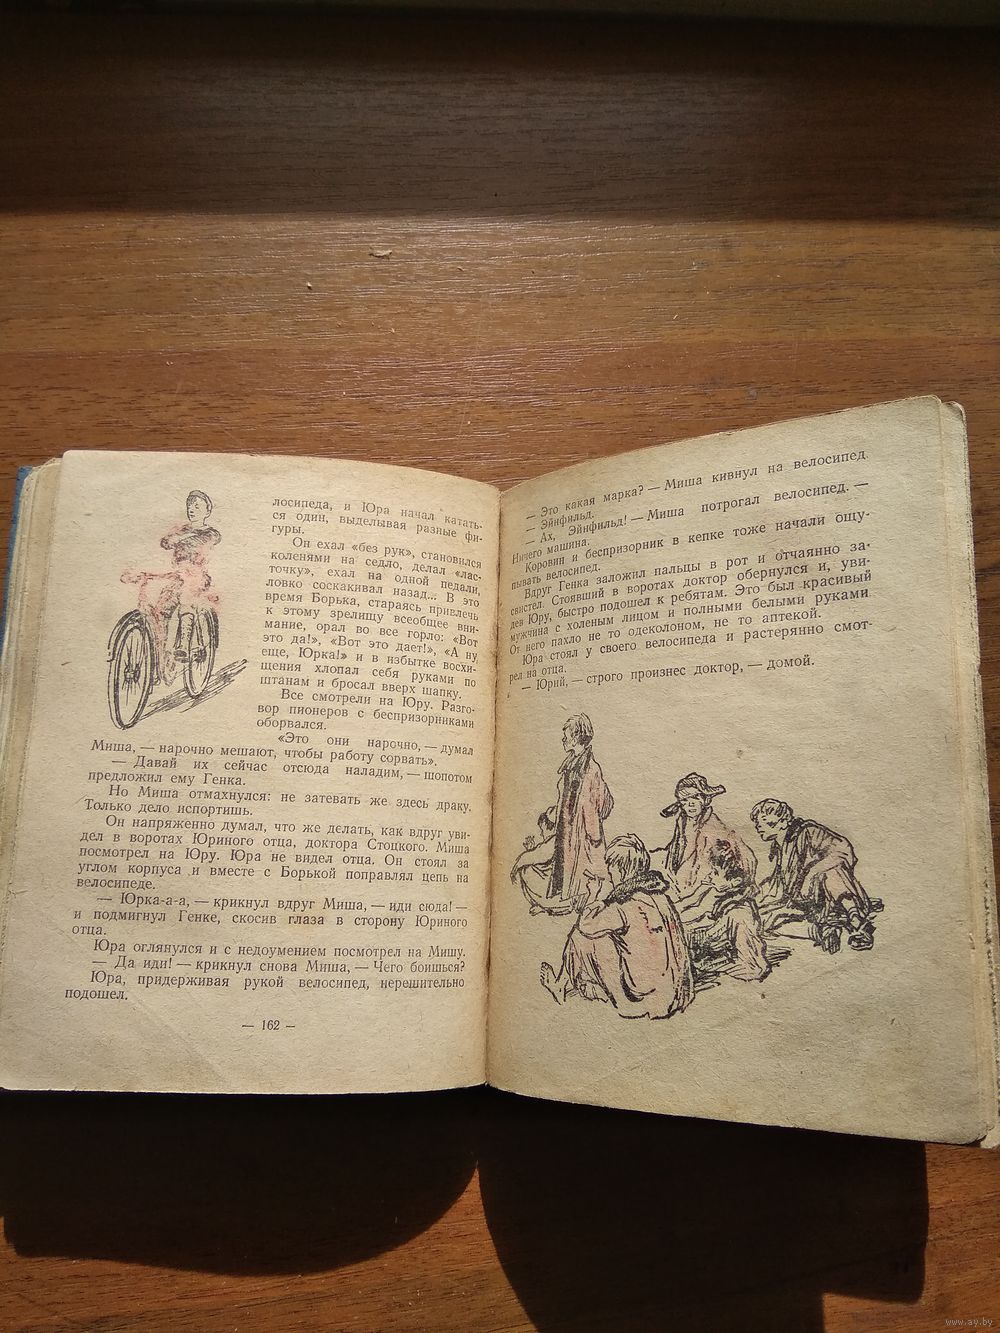 лосипеда, и Юра начал катать-
ся один, выделывая разные фи-
гуры.
Он ехал «без рук», становился
коленями на седло, делал «лас-
точку», ехал на одной педали,
ловко соскакивал назад... В это
время Борька, стараясь привлечь
к этому зрелищу всеобщее вни-
мание, орал во все горло: «Вот
это да!», «Вот это дает!», «А ну,
еще, Юрка!» и в избытке восхи-
щения хлопал себя руками по
штанам и бросал вверх шапку.
Все смотрели на Юру. Разго-
вор пионеров с беспризорниками
оборвался.
«Это они нарочно, — думал
Миша, — нарочно мешают, чтобы работу сорвать».
— Давай их сейчас отсюда наладим, — шопотом
предложил ему Генка.
Но Миша отмахнулся: не затевать же здесь драку.
Только дело испортишь.
Он напряженно думал, что же делать, как вдруг уви-
дел в воротах Юриного отца, доктора Стоцкого. Миша
посмотрел на Юру. Юра не видел отца. Он стоял за
углом корпуса и вместе с Борькой поправлял цепь на
велосипеде.
— Юрка-а-а, — крикнул вдруг Миша, — иди сюда! —
и подмигнул Генке, скосив глаза в сторону Юриного
отца.
Юра оглянулся и с недоумением посмотрел на Мишу.
— Да иди! — крикнул снова Миша, — Чего боишься?
Юра, придерживая рукой велосипед, нерешительно
подошел.
— 162 —
— Это какая марка? — Миша кивнул на велосипед.
— Эйнфильд.
— Ах, Эйнфильд! — Миша потрогал велосипед. —
Ничего машина.
Коровин и беспризорник в кепке тоже начали ощу-
пывать велосипед.
Вдруг Генка заложил пальцы в рот и отчаянно за-
свистел. Стоявший в воротах доктор обернулся и, уви-
дев Юру, быстро подошел к ребятам. Это был красивый
мужчина с холеным лицом и полными белыми руками
От него пахло не то одеколоном, не то аптекой.
Юра стоял у своего велосипеда и растерянно смот-
рел на отца.
— Юрий, — строго произнес доктор, — домой.
www.ay.by